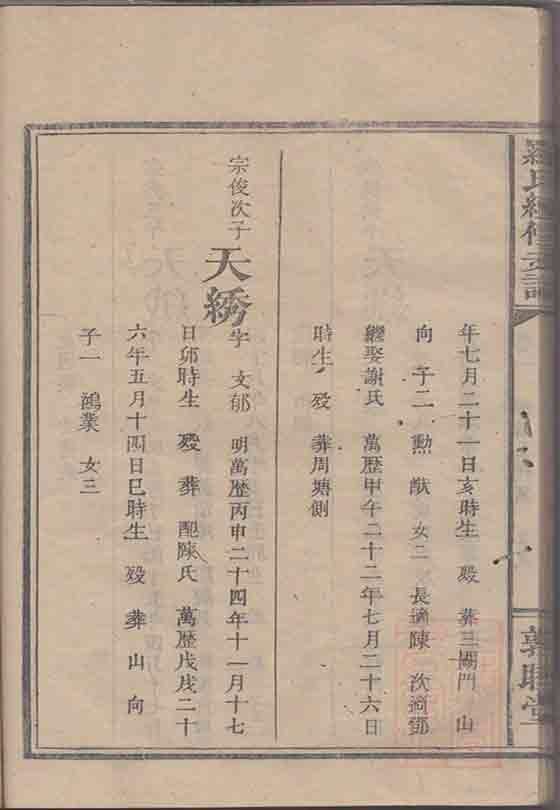 羅氏續修支譜
敦睦堂
年七月二十一日亥時生 歿 葬三關門 山
向 子二 勲 猷 女二 長適陳 次適鄧
繼娶謝氏 萬歷甲午二十二年七月二十六日
時生 歿 葬周塘側
宗俊次子 天綉 字 文郁 明萬歷丙申二十四年十一月十七
日卯時生 歿 葬 配陳氏 萬歷戊戌二十
六年五月十四日巳時生 歿 葬 山 向
子一 鴻業 女三